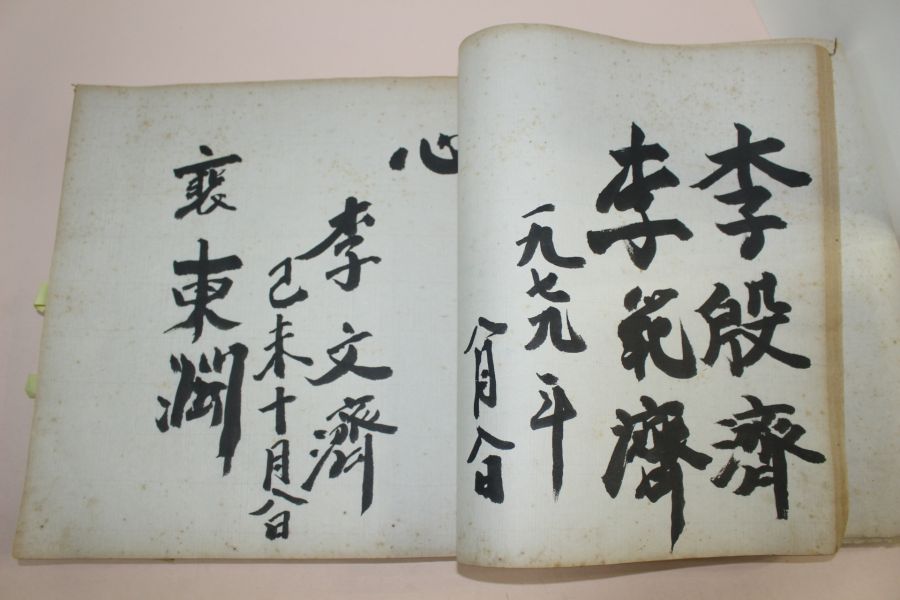 李殷濟
李範濟
一九七九年
八月八日
心
李文濟
己未十月八日
裵東淵